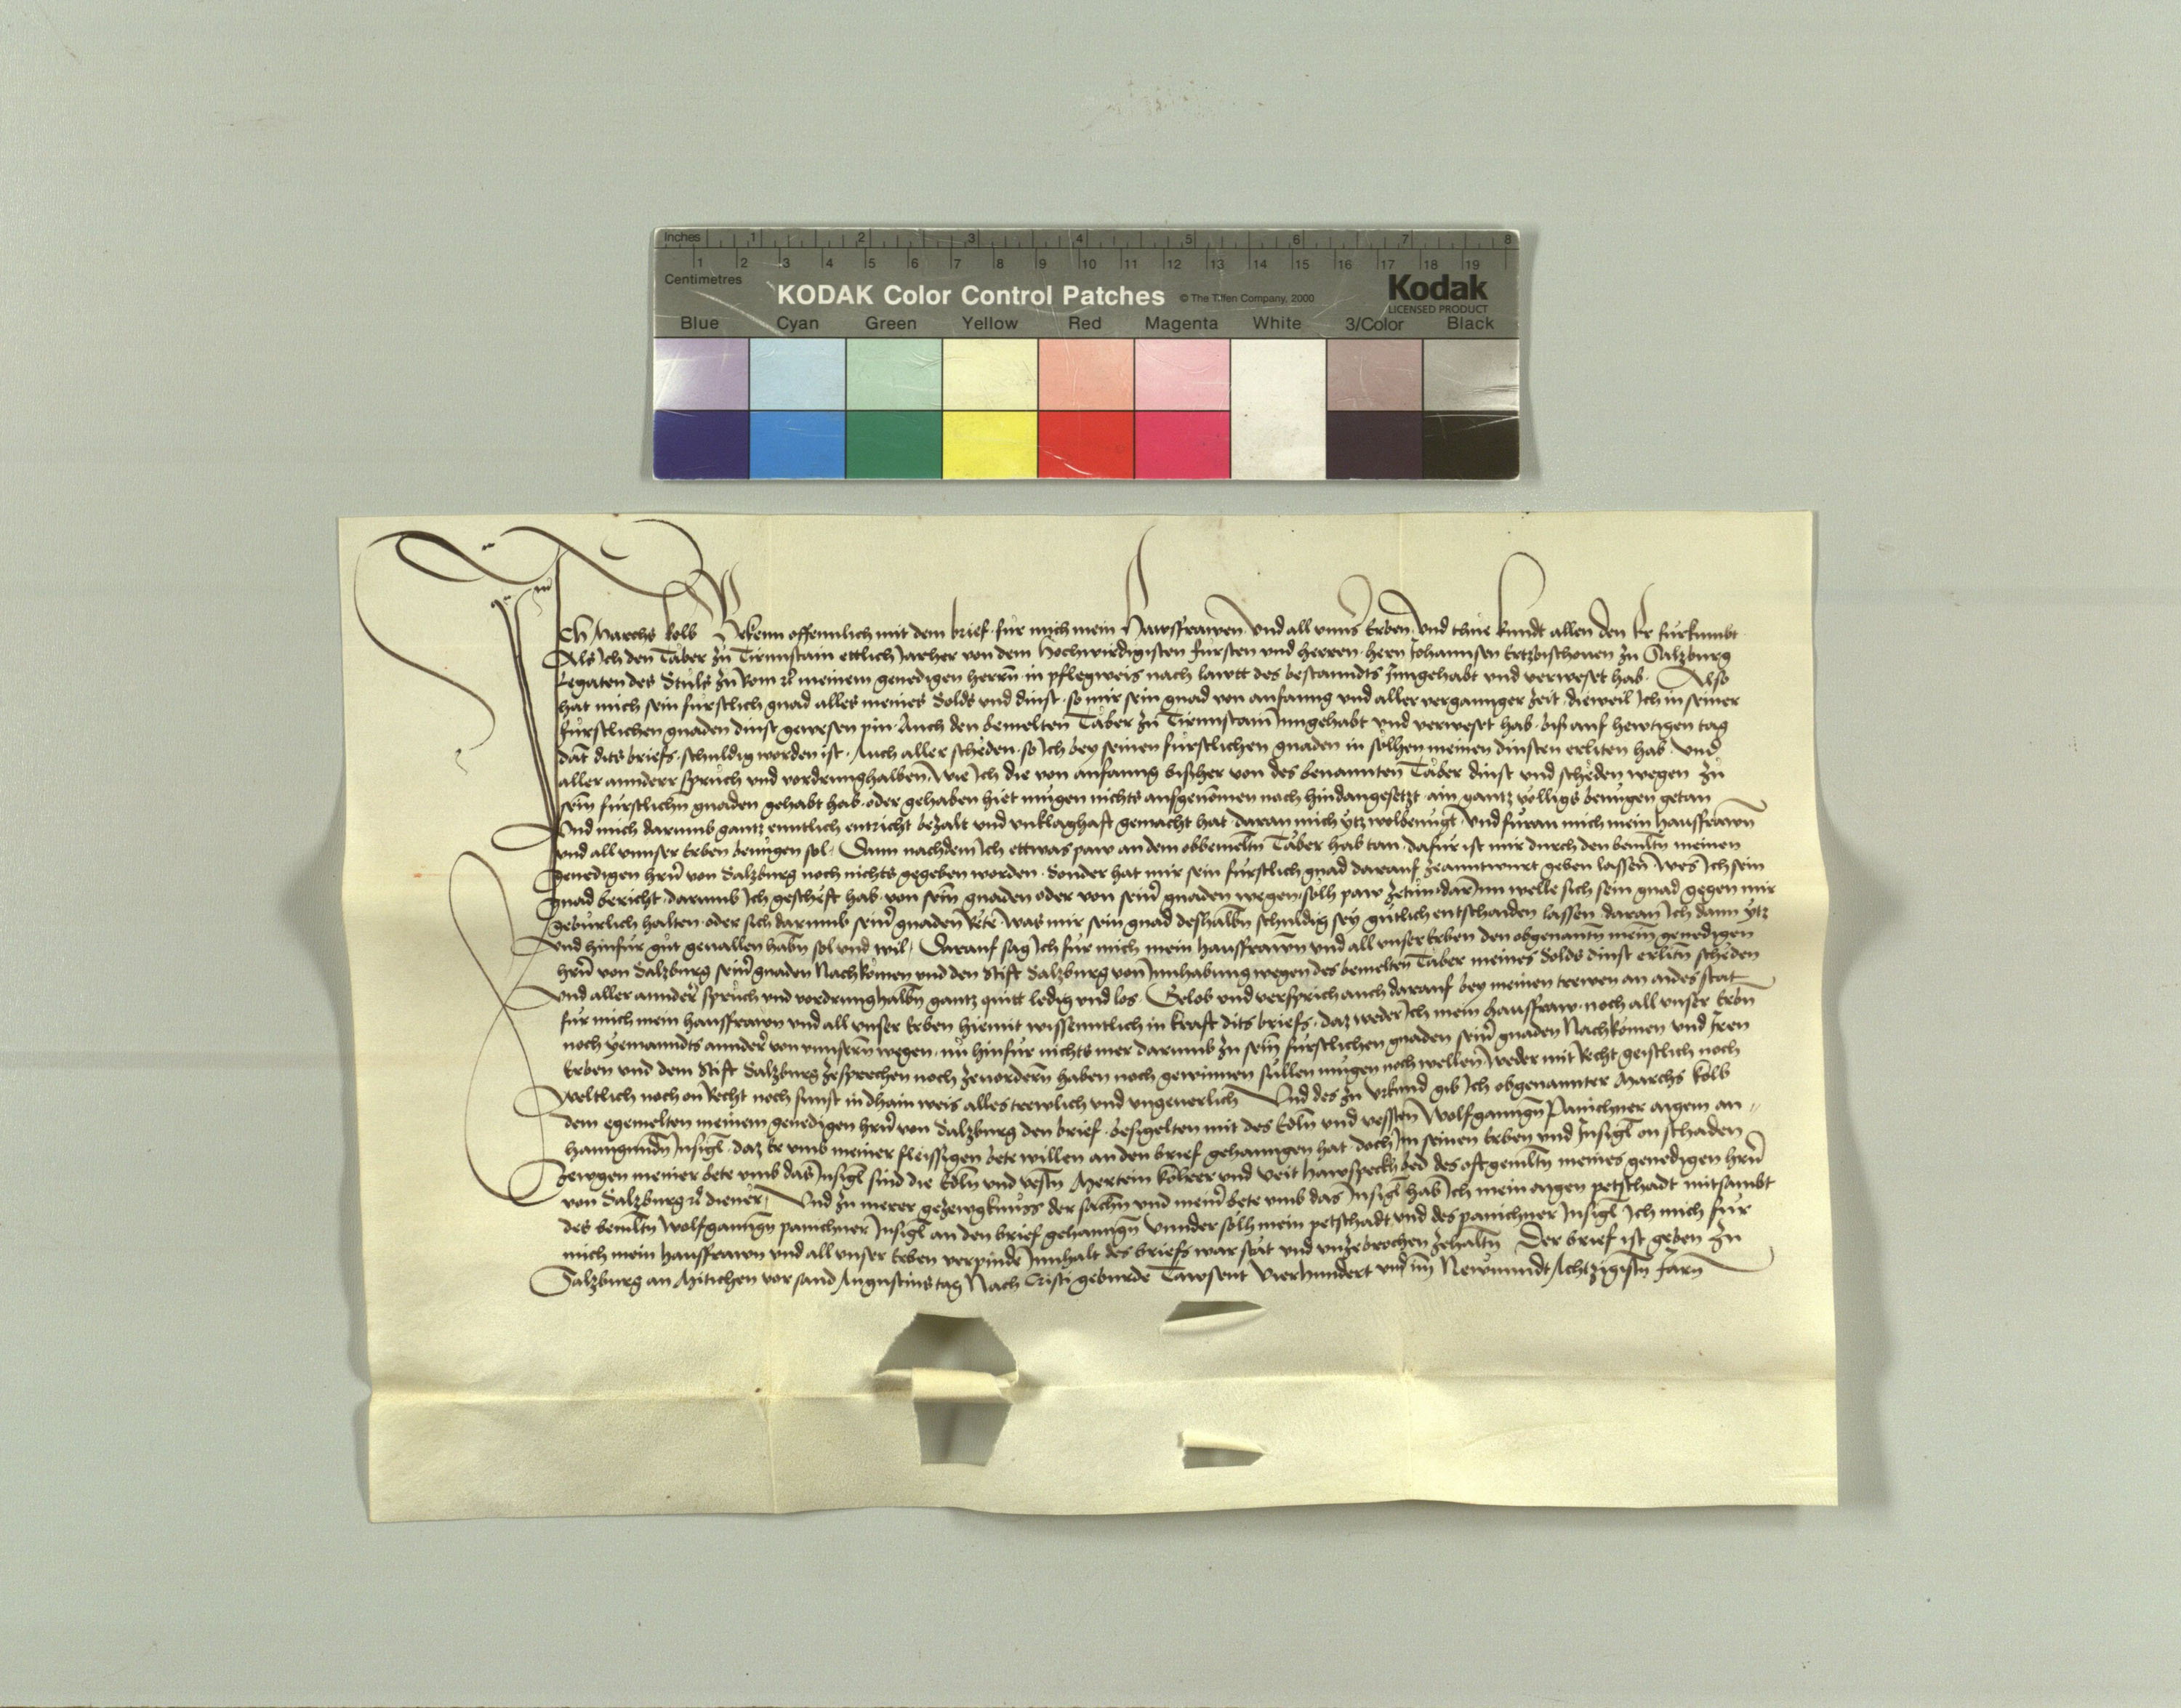 Inches 1 2 3 4 5 6 7 8
1 2 3 4 5 6 7 8 9 10 11 12 13 14 15 16 17 18 19
Centimetres
KODAK Color Control Patches © The Tiffen Company, 2000 Kodak
LICENSED PRODUCT
Blue Cyan Green Yellow Red Magenta White 3/Color Black
Ich Marchs kolb Bekenn offennlich mit dem brief fur mich mein Hawsfrawen und all unns Erben und thue kundt allen den Er furkumbt
Als Ich den Täber zu Tirnnstain ettlich Jarher von dem Hochwirdigisten fursten und herren hern Johannsen Ertzbischouen zu Salzburg
Legaten des Stuls zu Rom meinem genedigen herrn in pflegweis nach lawtt des bestanndts Inngehabt und verweset hab Also
hat mich sein furstlich gnad alles meines Solds und dinst so mir sein gnad von anfanng und aller verganngner zeit dieweil Ich in seiner
furstlichen gnaden dinst gewesen pin Auch den bemelten Täber zu Tirnnstain Inngehabt und verweset hab bis auf hewtigen tag
dat dits briefs schuldig worden ist Auch aller scheden so Ich bey seinen furstlichen gnaden in solhen meinen dinsten erliten hab Und
aller annderr spruch und vordrunghalben Wie Ich die von anfanng bisher von des benannten Täber dinst und scheden wegen zu
sein furstlichn gnaden gehabt hab oder gehaben hiet mugen nichts ausgenomen noch hindangesetzt ain gantz volligs benugen getan
Und mich darumb gantz enntlich entricht bezalt und unklaghaft gemacht hat daran mich ytz wolbenugt Und furan mich mein hausfrawn
und all unnser Erben benugen sol Dann nachdem Ich ettwas paw an dem obbemeltn Täber hab tan dafur ist mir durch den bemeltn meinen
genedigen hrn von Salzburg noch nichts gegeben worden Sonder hat mir sein furstlich gnad darauf zeanntwurt geben lassen wes Ich sein
gnad bericht darumb Ich geschefft hab von sein gnaden oder von seinr gnaden wegen solh paw zetun darInn welle sich sein gnad gegen mir
geburlich halten oder sich darumb seinr gnaden Rete was mir sein gnad deshalbn schuldig sey gutlich entschaiden lassen daran Ich dann ytz
und hinfur gut geuallen habn sol und wil Darauf sag Ich fur mich mein hausfrawn und all unser Erben den obgenantn mein genedigen
hrn von Salzburg seinr gnaden Nachkomen und den Stift Salzburg von Innhabung wegen des bemelten Täber meines Solds dinst erlitn scheden
Und aller annder spruch und vordrunghalbn gantz quitt ledig und los Gelob und versprich auch darauf bey meinen trewen an aides stat
fur mich mein hausfrawn und all unser Erben hiemit wissenntlich in kraft dits briefs daz weder Ich mein hausfraw noch all unser Erbn
noch yemanndts annder von unnsern wegen nu hinfur nichts mer darumb zu sein furstlichen gnaden seinr gnaden Nachkomen und Iren
Erben und dem Stift Salzburg zesprechen noch zeuordern haben noch gewinnen sullen mugen noch wellen weder mit Recht geistlich noch
Weltlich noch on Recht noch sunst in dhain weis alles trewlich und ungeuerlich Und des zu urkund gib Ich obgenannter Marchs Kolb
dem egemelten meinem genedigen hrn von Salzburg den brief besigelten mit des Edln und vessten Wolfganngn Panichner aigem an
hanngundn Insigl daz Er umb meiner fleissigen bete willen an den brief gehanngen hat doch Im seinen Erben und Insigl on schaden
Zewgen meiner bete umb das Insigl sind die Edln und vestn Mertein und Veit bed des oftgemeltn meines genedigen hrn
von Salzburg diener Und zu merer gezewgknuss der sachn und meinr bete umb das Insigl hab Ich mein aigen petschadt mitsambt
des bemeltn Wolfganngn panichner Insigl an den brief gehanngn Unnder solh mein petschadt und des panichner Insigl Ich mich fur
mich mein hausfrawn und all unser Erben verpinde Innhalt des briefs war stat und unzebrochen zehaltn Der brief ist geben zu
Salzburg an Mitichen vor sand Augustins tag Nach Cristi geburde Tawsent Vierhundert und im Newnundt Achtzigistn Jarn